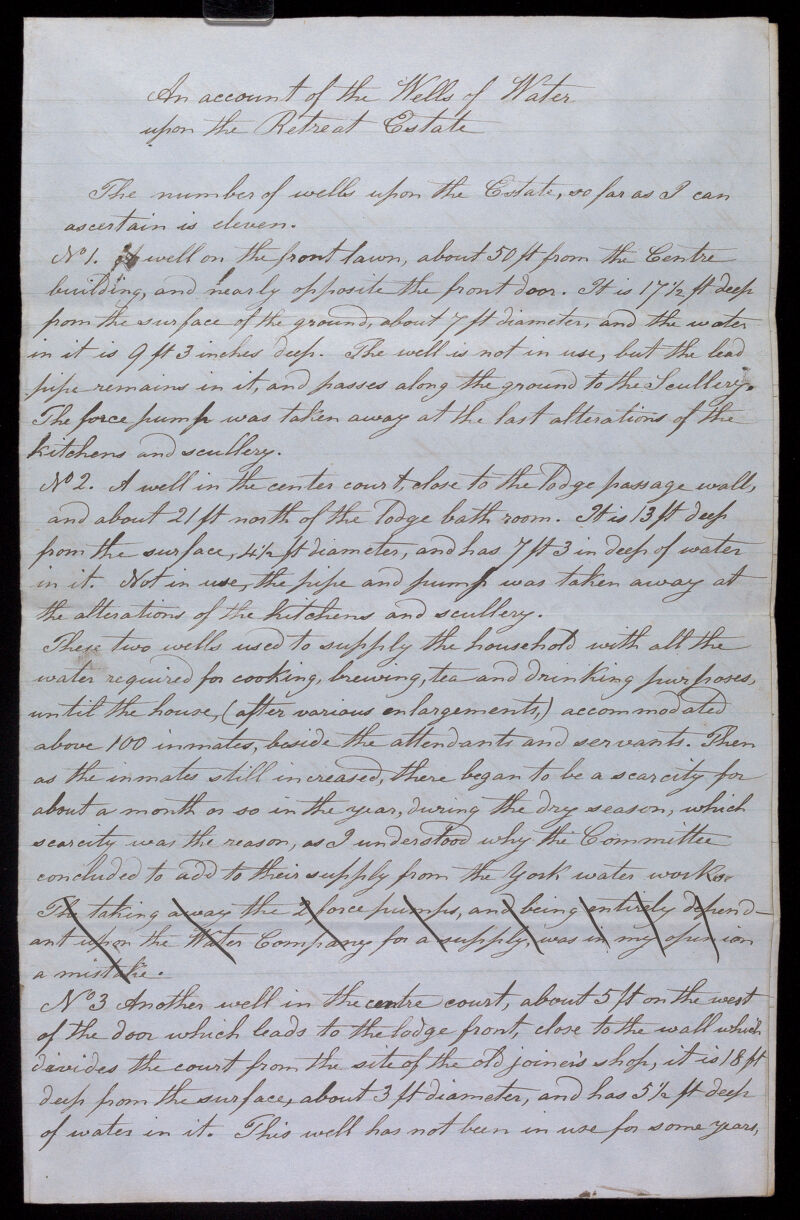 An account of the Wells of Water
upon the Retreat Estate
The number of wells upon the Estate, so far as I can
ascertain is eleven.
No 1. A well on the front lawn, about 50 ft from the Centre
building, and nearly opposite the front door. It is 17½ ft deep
from the surface of the ground, about 7 ft diameter, and the water
in it is 9 ft 3 inches deep. The well is not in use, but the lead
pipe remains in it, and passes along the ground to the Scullery.
The force pump was taken away at the last alterations of the
kitchens and scullery.
No 2. A well in the center court, close to the lodge passage wall,
and about 21 ft north of the lodge bath room. It is 13 ft deep
from the surface, 4½ ft diameter, and has 7 ft 3 in deep of water
in it. Not in use, the pipe and pump was taken away at
the alterations of the kitchens and scullery.
These two wells used to supply the household with all the
water required for cooking, brewing, tea and drinking purposes,
until the house, (after various enlargements,) accommodated
above 100 inmates, beside the attendants and servants. Then
as the inmates still increased, there began to be a scarcity for
about a month or so in the year, during the dry season, which
scarcity was the reason, as I understood why the Committee
concluded to add to their supply from the York water works.
The taking away the 2 force pumps, and being entirely depend-
ant upon the Water Company for a supply, was in my opinion
a mistake.
No 3 Another well in the centre court, about 5 ft on the west
of the door which leads to the lodge front, close to the wall which
divides the court from the site of the old joiner's shop, it is 18 ft
deep from the surface, about 3 ft diameter, and has 5½ ft deep
of water in it. This well has not been in use for some years,